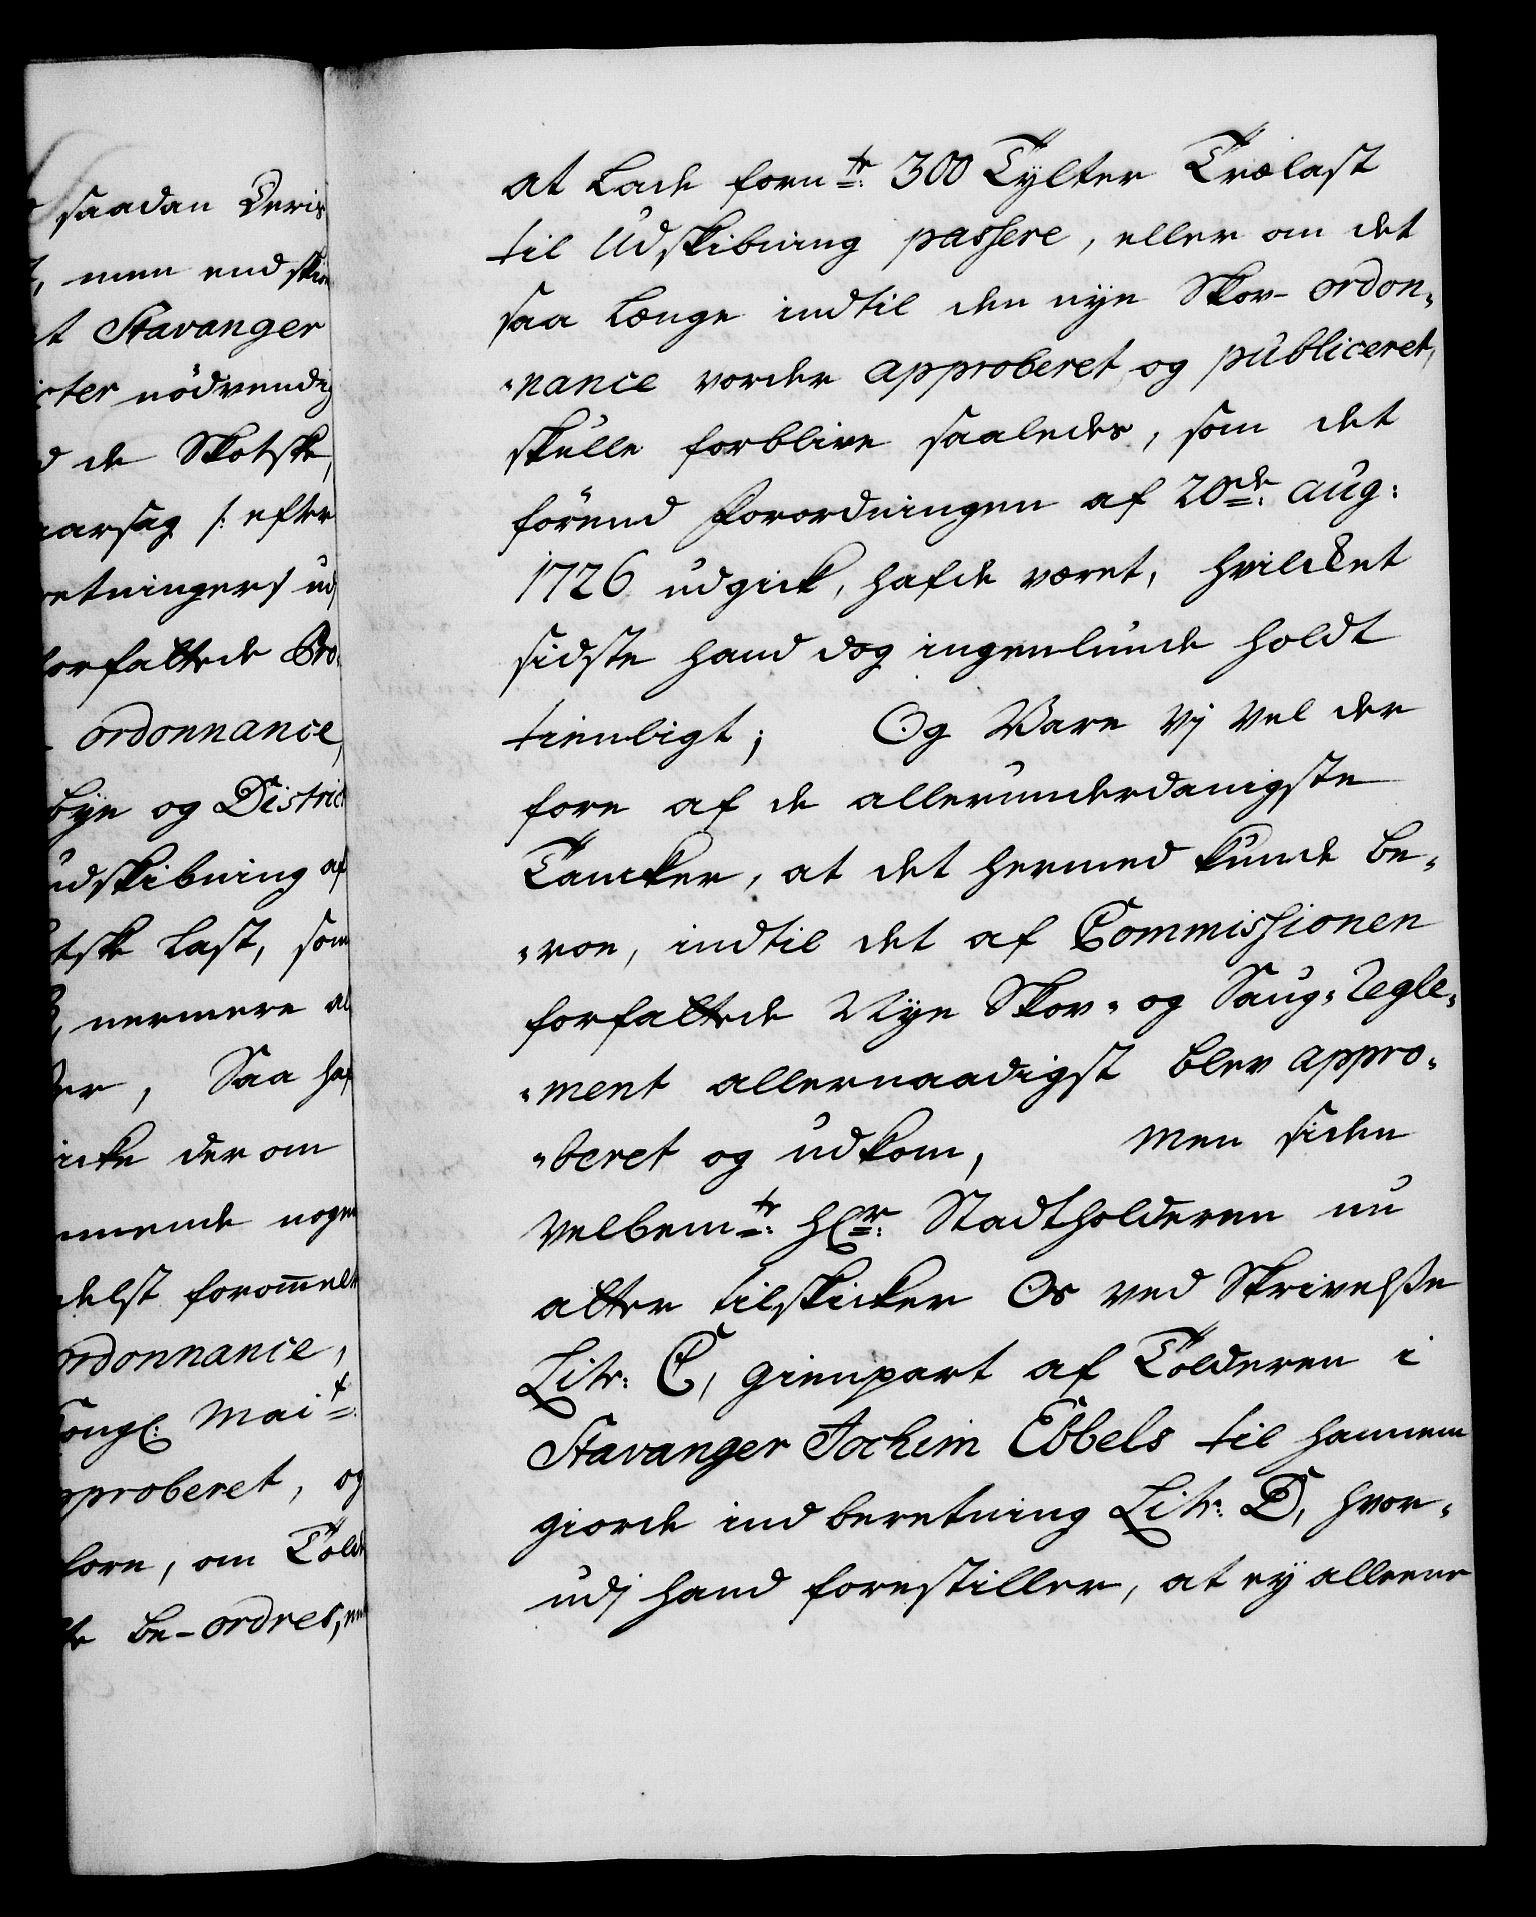 saadan Deris
men endskiø
Stavanger
nödvendig
de Skotske,
aarsag /: efter
retningers ud
forfattede Pro-
ordonnance,
bÿe og District
udskibning af
tske Last, som
nermere al
er, Saa haf
icke der om
mmende nogen
delst forommelt
ordonnance,
Kongl: Mait:
pproberet, og
om Told
be-ordres, m
at Lade fornte: 300 Tÿlter Trælast
til Udskibning passere, eller om det
saa Længe indtil den nÿe Skov-ordon-
-nance vorder approberet og publiceret,
skulle forblive saaledes, som det
förend Forordningen af 20de: Aug:
1726 udgick, hafde været, hvilcket
sidste hand dog ingenlunde holdt
tienligt; Og Vare Vj Vel der
fore af de allerunderdanigste
Tancker, at det hermed kunde be-
-roe, indtil det af Commissionen
forfattede Nÿe Skov- og Saug-Regle-
-ment allernaadigst blev appro-
-beret og udkom, Men siden
Velbemte: Hr: Stadtholderen nu
atter tilskicker Os ved Skrivelsse
Litr: C, gienpart af Tolderen i
Stavanger Jochim Ebbels til hannem
giorde indberetning Litr: D, hvor-
udj hand forestiller, at eÿ alleene